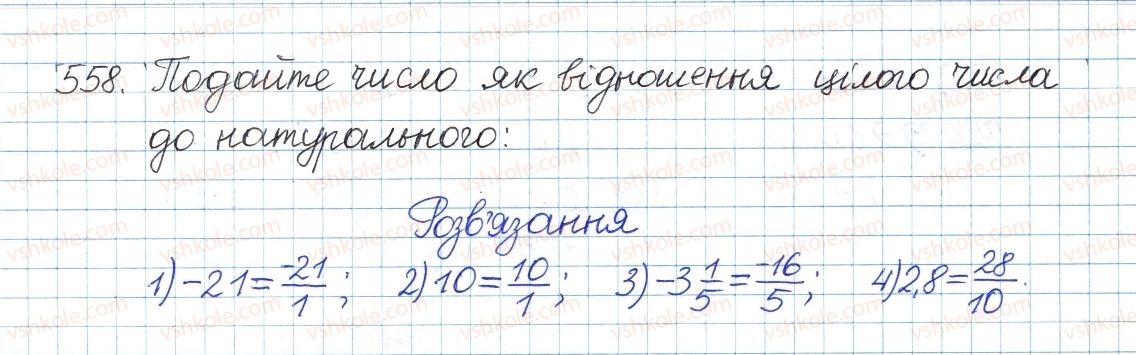 558. Подайте число як відношення цілого числа
до натурального:
Розв'язання
1) -21 = -21/1; 2) 10 = 10/1; 3) -3 1/5 = -16/5; 4) 2,8 = 28/10.